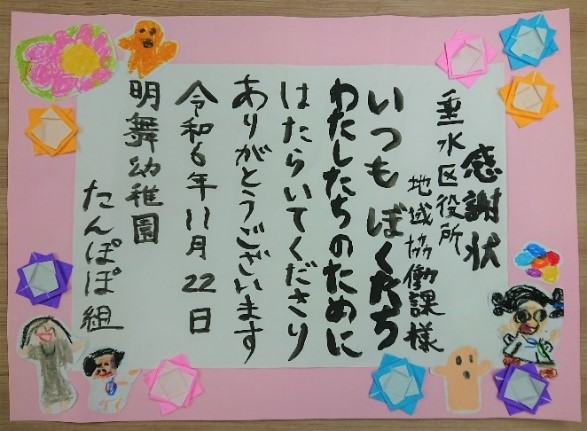 感謝状
垂水区役所
地域協働課様
いつもぼくたち
わたしたちのために
はたらいてくださり
ありがとうございます
令和6年11月22日
明舞幼稚園
たんぽぽ組